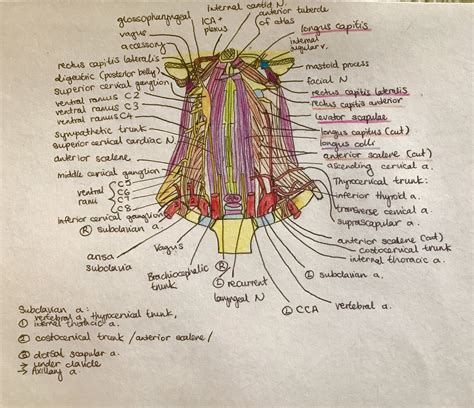 glossopharyngeal
vagus
accessory
rectus capitis lateralis
digastric (posterior belly)
superior cervical ganglion
ventral ramus C2
ventral ramus C3
ventral ramus C4
sympathetic trunk
superior cervical cardiac N
anterior scalene
middle cervical ganglion
ventral rami C5 C6 C7 C8
inferior cervical ganglion
Ⓡ subclavian a.
ansa subclavia
Vagus
Brachiocephalic trunk
Ⓡ
Ⓛ recurrent laryngeal N
Ⓛ CCA
vertebral a.
Internal carotid N.
ICA + plexus
anterior tubercle of atlas
longus capitis
internal jugular v.
mastoid process
facial N
rectus capitis lateralis
rectus capitis anterior
levator scapulae
longus capitus (cut)
longus colli
anterior scalene (cut)
ascending cervical a.
Thyrocervical trunk:
inferior thyroid a.
transverse cervical a
suprascapular a.
anterior scalene (cut)
costocervical trunk
internal thoracic a.
Ⓛ subclavian a.
Subclavian a:
① vertebral a, thyrocervical trunk,
internal thoracic a.
② costocervical trunk /anterior scalene/
③ dorsal scapular a.
→ under clavicle
→ Axillary a.